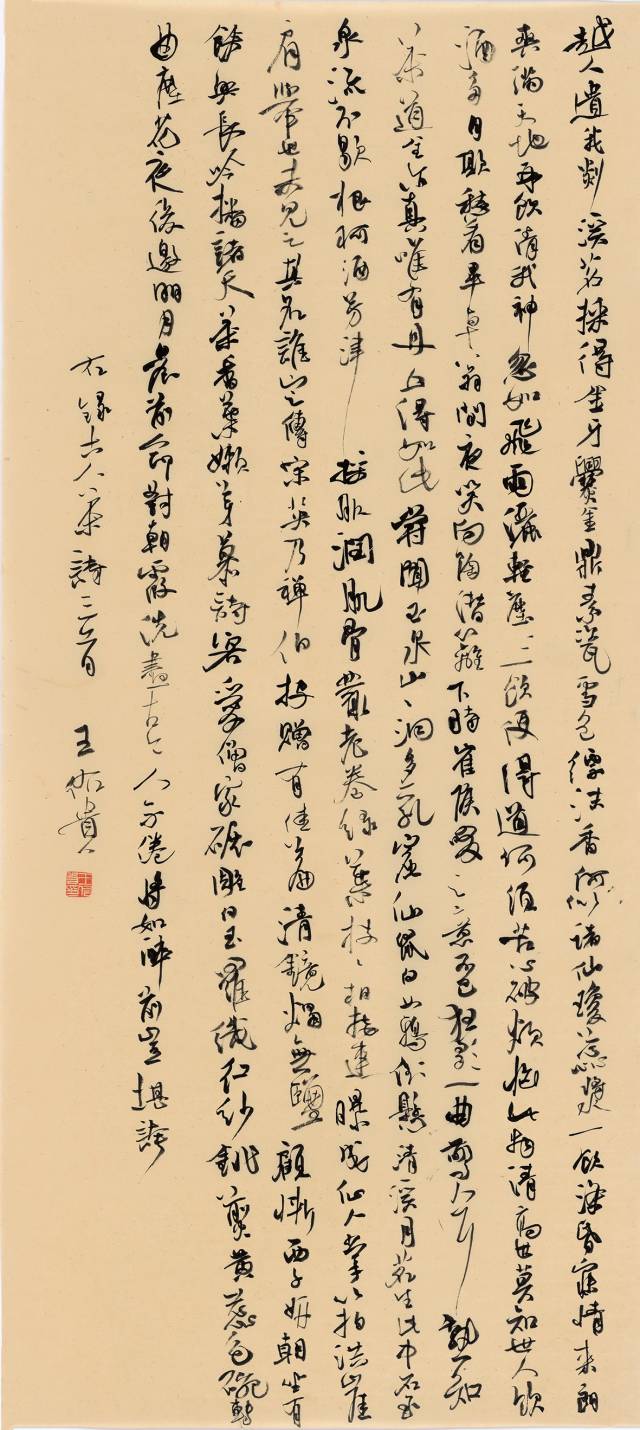 越人遺我剡溪茗採得金牙爨金鼎素瓷雪色縹沫香何似諸仙瓊蕊漿一飲滌昏寐情來朗
爽滿天地再飲清我神忽如飛雨灑輕塵三飲便得道何須苦心破煩惱此物清高世莫知世人飲
酒多自欺愁看畢卓甕間夜笑向陶潛籬下時崔侯啜之意不已狂歌一曲驚人耳孰知
茶道全爾真唯有丹丘得如此嘗聞玉泉山山洞多乳窟仙鼠白如鴉倒懸清溪月茗生此中石玉
泉流不歇根柯灑芳津採服潤肌骨叢老卷綠葉枝枝相接連曝成仙人掌以拍洪崖
肩舉世未見之其名誰定傳宗英乃禪伯投贈有佳篇清鏡燭無鹽顧慚西子妍朝坐有
餘興長吟播諸天茶香葉嫩芽慕詩客愛僧家碾雕白玉羅織紅紗銚煎黃蕊色碗轉
曲塵花夜後邀明月晨前命對朝霞洗盡古今人不倦將如醉前豈堪誇
右錄古人茶詩三首 王佑貴